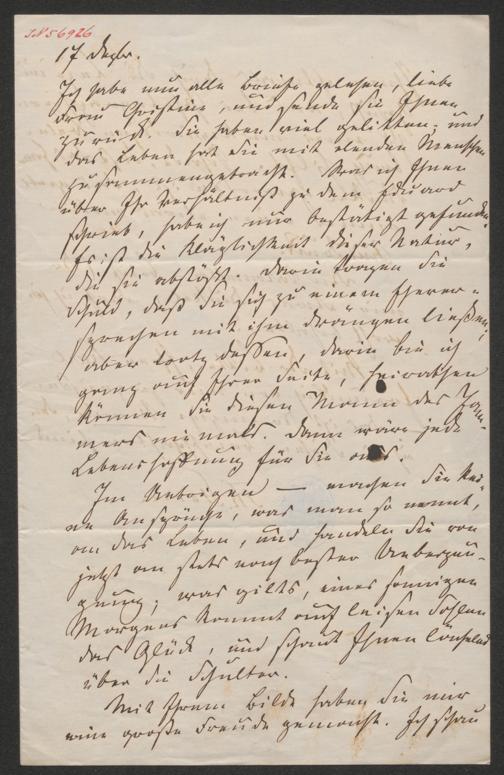 J.N 56926
17 Dezbr.
Ich habe nun alle Briefe gelesen, liebe
Frau Christine, und sende sie Ihnen
zurück. Sie haben viel gelitten, und
das Leben hat Sie mit elenden Menschen
zusammengebracht. Was ich Ihnen
über Ihr Verhältniß zu dem Eduard
schrieb, habe ich nur bestätigt gefunden.
Es ist die Kläglichkeit dieser Natur,
die sie abstößt. Darin tragen Sie
Schuld, daß Sie sich zu einem Ehever-
sprechen mit ihm drängen ließen;
aber trotz dessen, darin bin ich
ganz auf Ihrer Seite, heirathen
können Sie diesen Mann des Jam-
mers niemals. Dann wäre jede
Lebenshoffnung für Sie aus.
Im Uebrigen — machen Sie kei-
ne Ansprüche, was man so nennt,
an das Leben, und handeln Sie von
jetzt an stets nach bester Ueberzeu-
gung; was gilts, eines sonnigen
Morgens kommt auf leisen Sohlen
das Glück, und schaut Ihnen lächelnd
über die Schulter.
Mit Ihrem Bilde haben Sie mir
eine große Freude gemacht. Ich schau